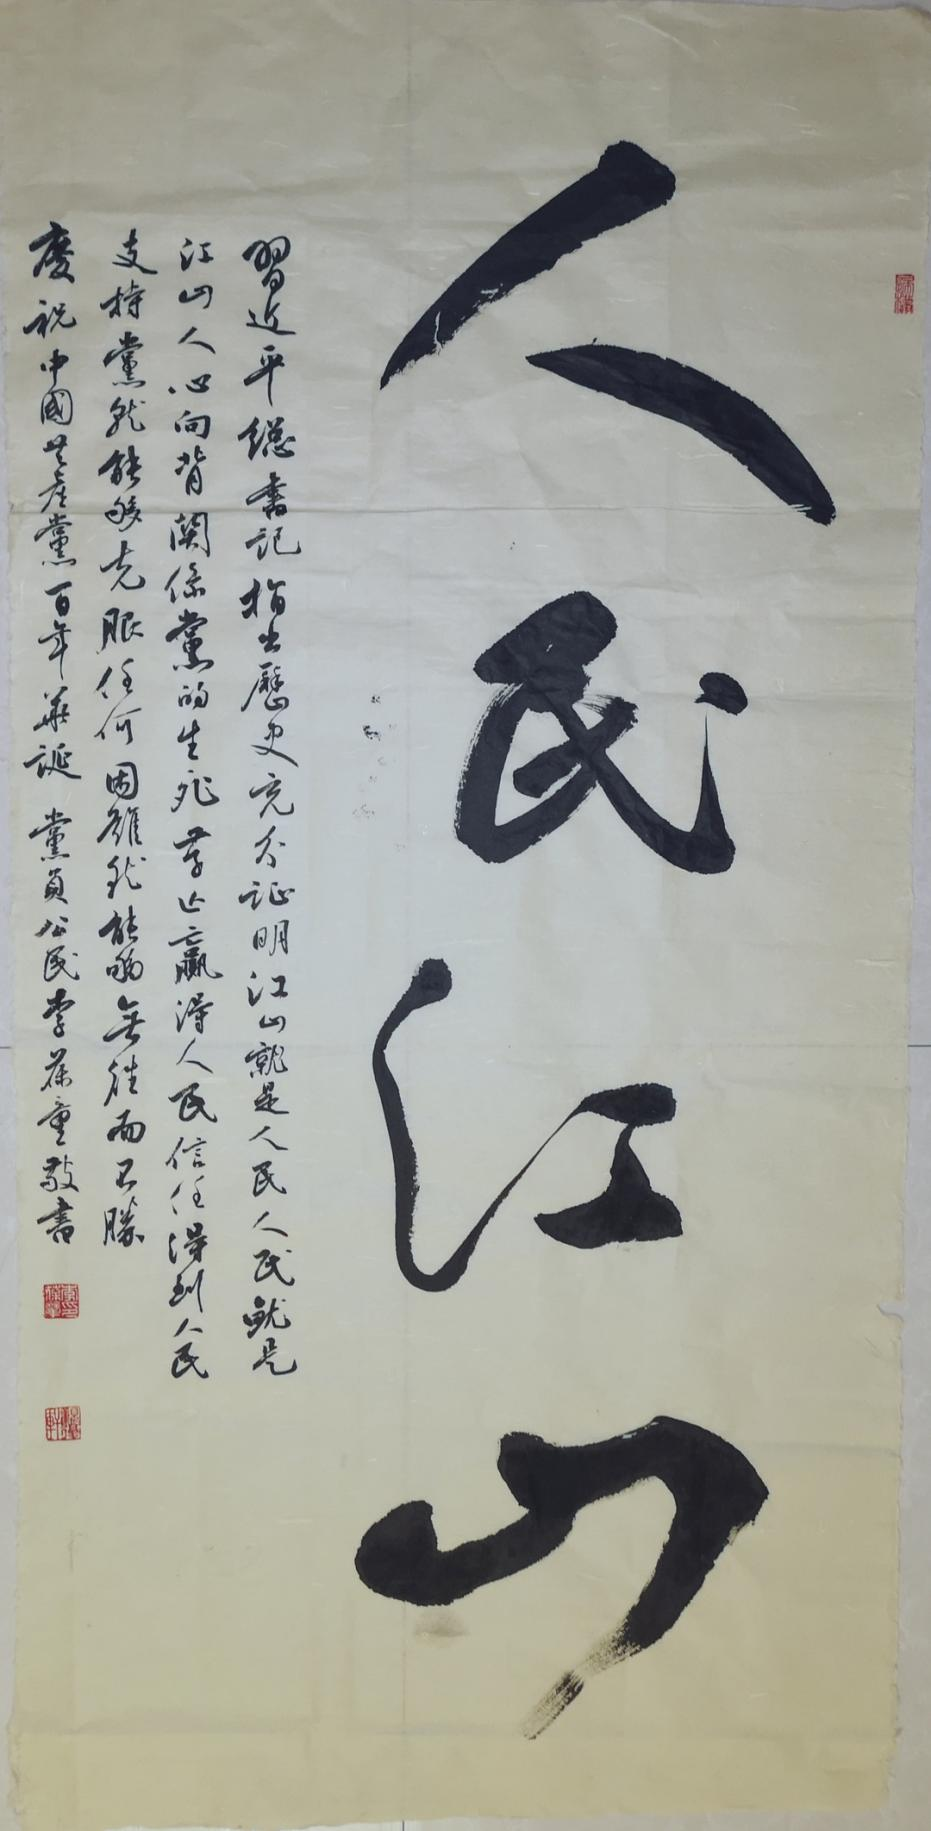 人民江山
習近平總書記指出歷史充分证明江山就是人民人民就是
江山人心向背関係黨的生死存亡赢得人民信任得到人民
支持黨就能够克服任何困難就能够無往而不勝
慶祝中國共産黨百年華誕 黨員公民李葆童敬書